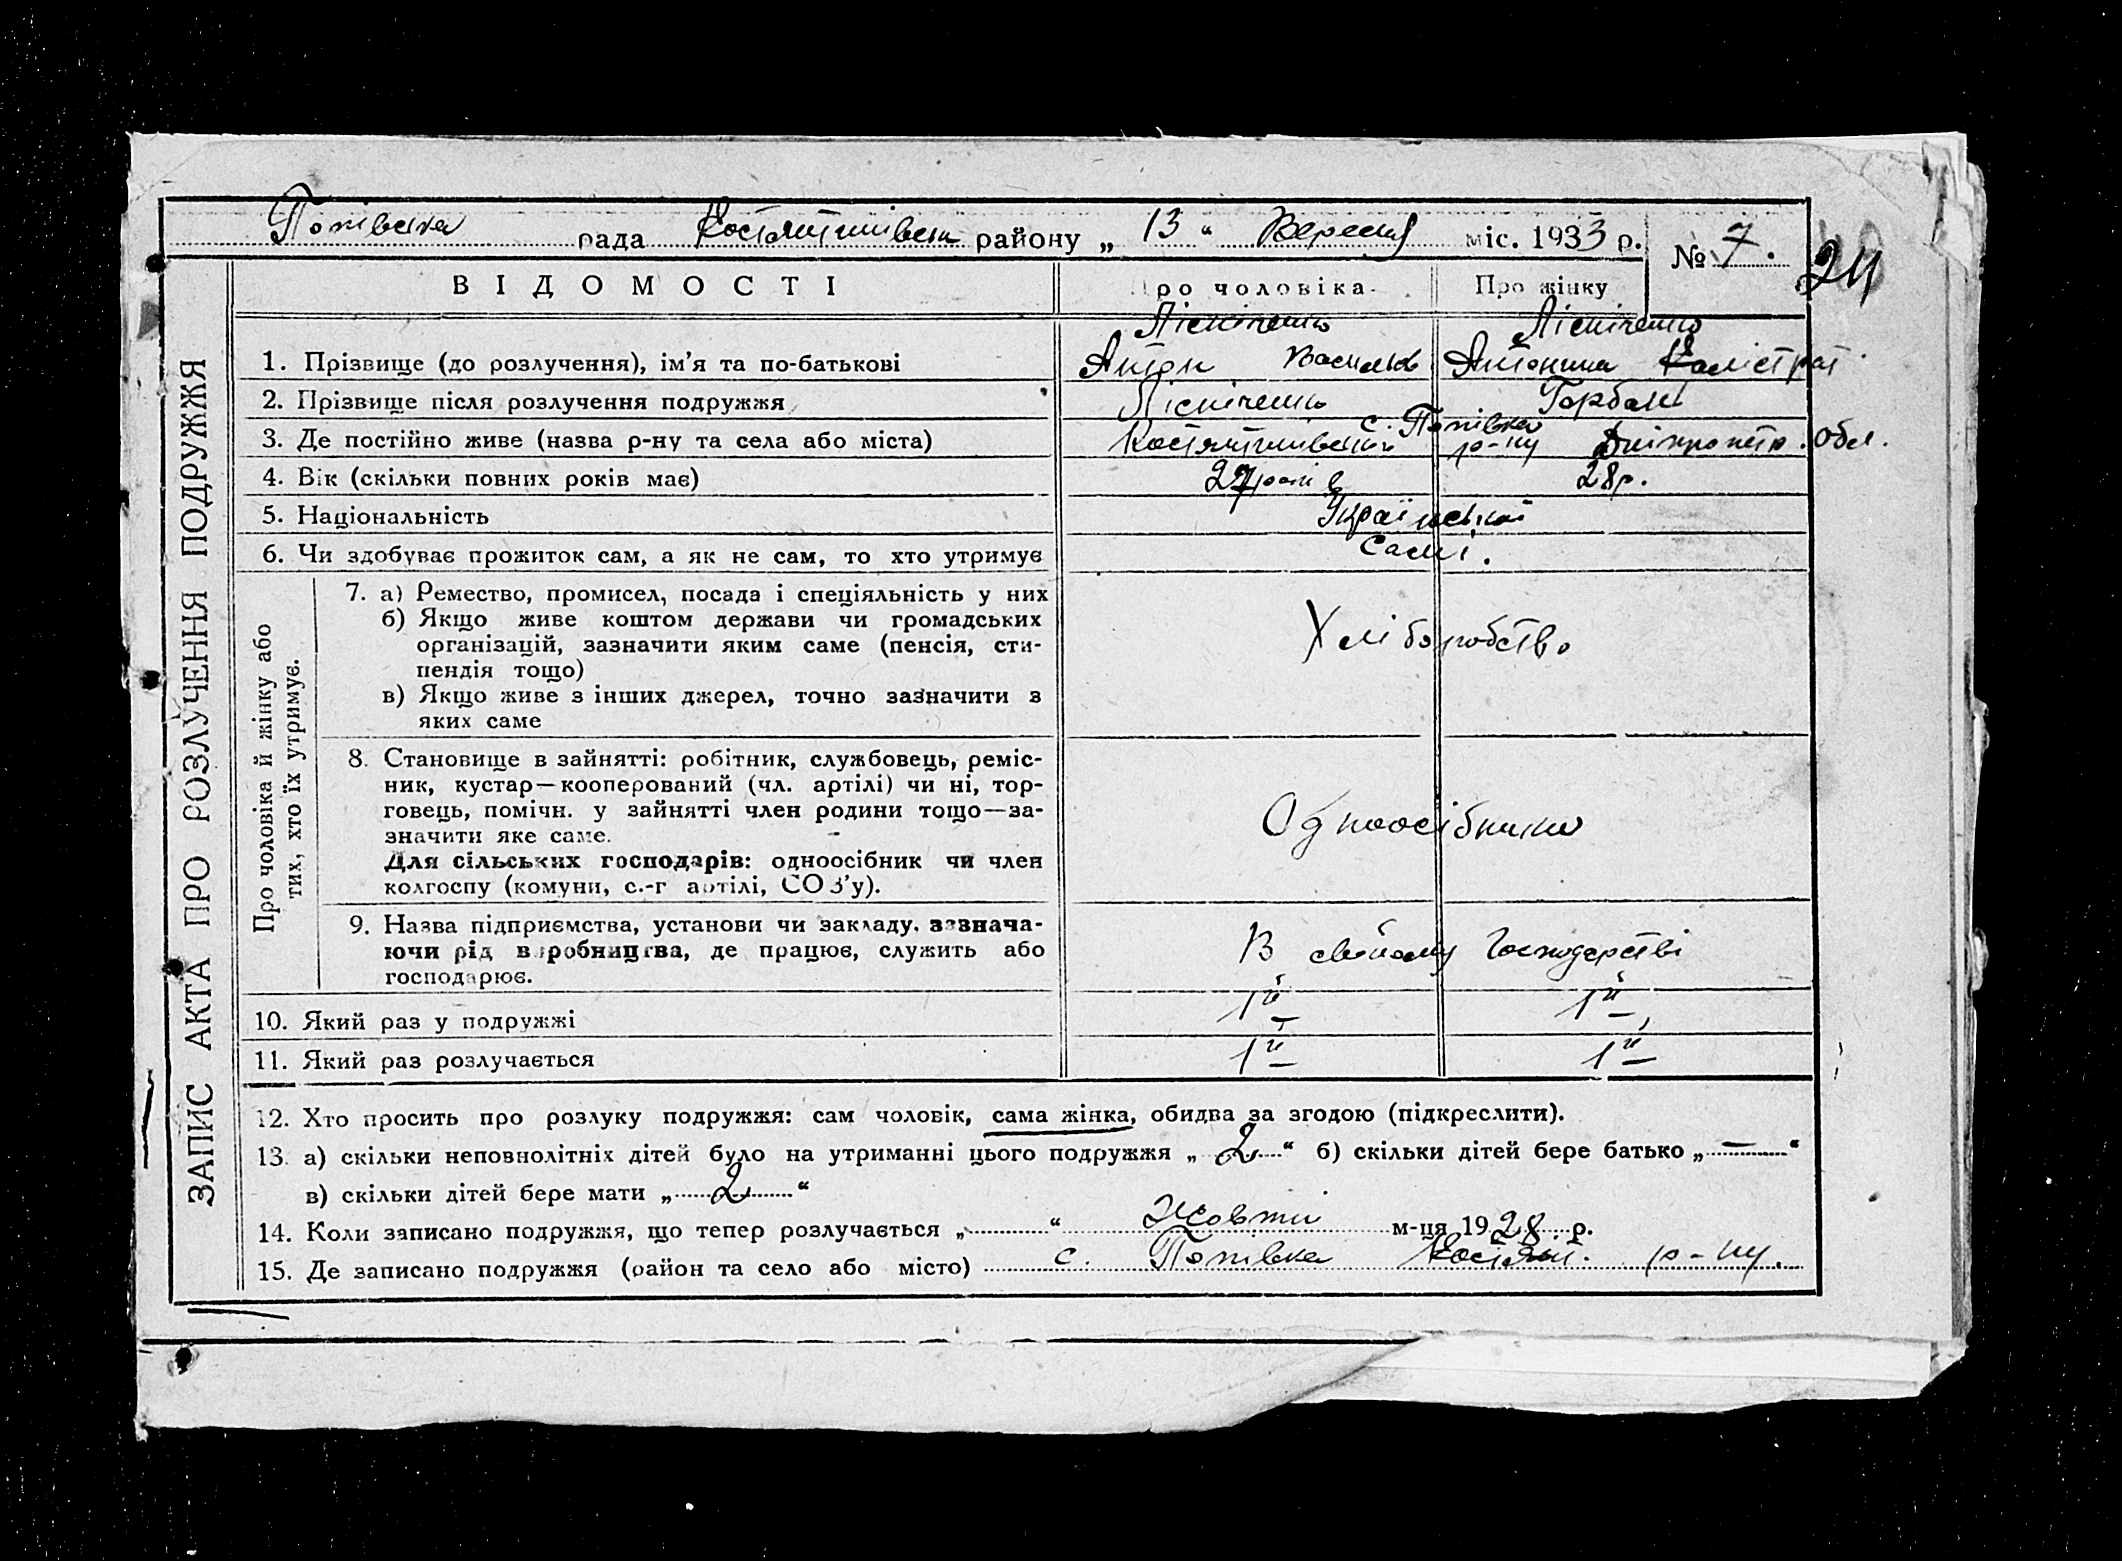 Попівська рада Костянтинівськ району „ 13 “ Вересня міс. 1933 р. № 7.
24
ВІДОМОСТІ Про чоловіка Про жінку
ЗАПИС АКТА ПРО РОЗЛУЧЕННЯ ПОДРУЖЖЯ
1. Прізвище (до розлучення), ім’я та по-батькові Антон Васильов Антонина Калістрат.
2. Прізвище після розлучення подружжя Горбань
3. Де постійно живе (назва р-ну та села або міста) с. Попівка
Костянтинівський р-ну Дніпропетр. Обл.
4. Вік (скільки повних років має) 27 років 28 р.
5. Національність Українські
6. Чи здобуває прожиток сам, а як не сам, то хто утримує Самі.
Про чоловіка й жінку або
тих, хто їх утримує.
7. а) Ремество, промисел, посада і спеціяльність у них
б) Якщо живе коштом держави чи громадських
організацій, зазначити яким саме (пенсія, сти-
пендія тощо)
в) Якщо живе з інших джерел, точно зазначити з
яких саме
Хліборобство
8. Становище в зайнятті: робітник, службовець, реміс-
ник, кустар—кооперований (чл. артілі) чи ні, тор-
говець, помічн. у зайнятті член родини тощо—за-
значити яке саме.
Для сільських господарів: одноосібник чи член
колгоспу (комуни, с.-г артілі, СОЗ’у).
Одноосібники
9. Назва підприємства, установи чи закладу, зазнача-
ючи рід виробництва, де працює, служить або
господарює.
В свойому господарстві
10. Який раз у подружжі 1й 1й
11. Який раз розлучається 1й 1й
12. Хто просить про розлуку подружжя: сам чоловік, сама жінка, обидва за згодою (підкреслити).
13. а) скільки неповнолітніх дітей було на утриманні цього подружжя „ 2 “ б) скільки дітей бере батько „ — “
в) скільки дітей бере мати „ 2 “
14. Коли записано подружжя, що тепер розлучається „ “ Жовтні м-ця 1928 р.
15. Де записано подружжя (район та село або місто) с. Попівка Костянт. р-ну.